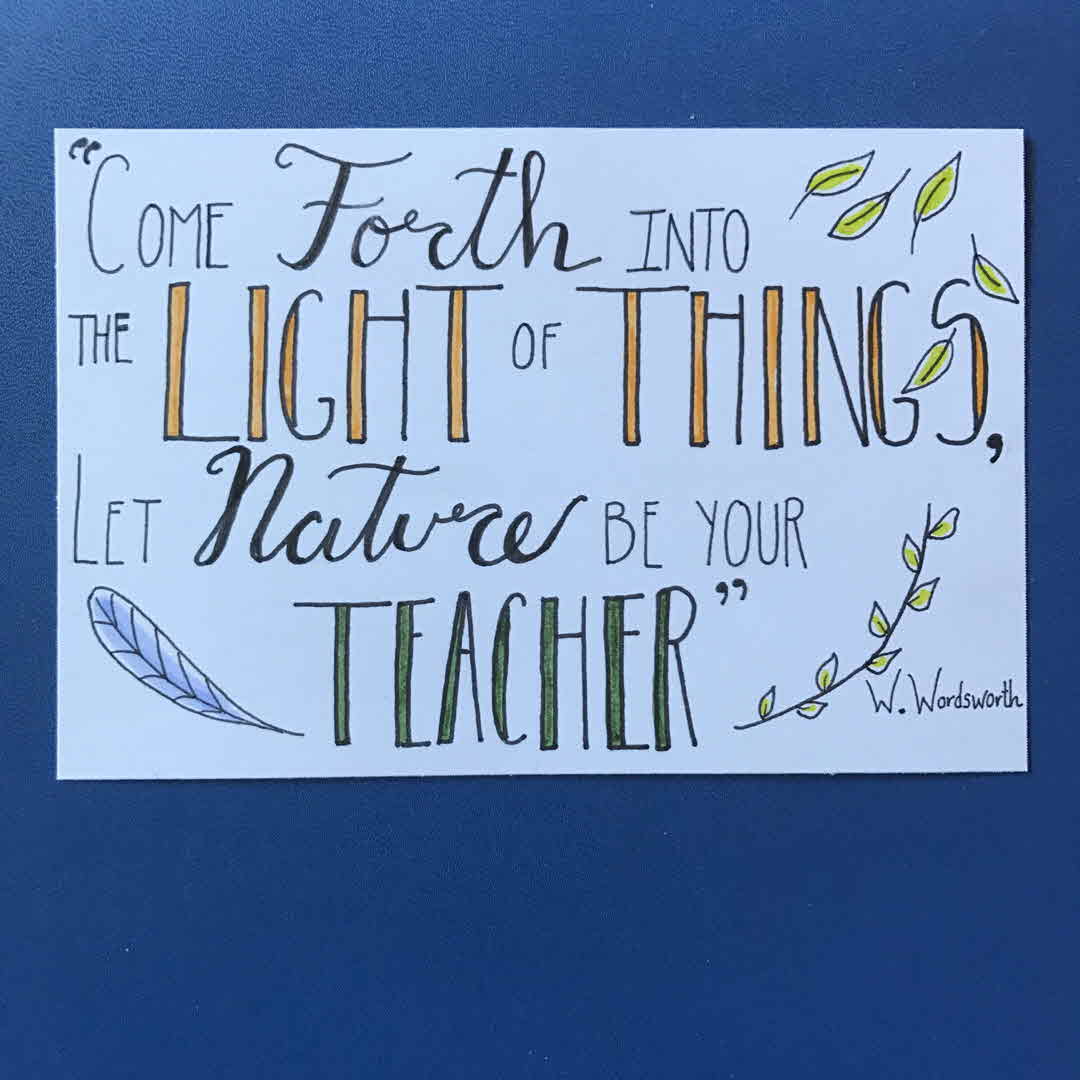 “Come Forth INTO
THE LIGHT OF THINGS,
LET Nature BE YOUR
TEACHER”
W. Wordsworth